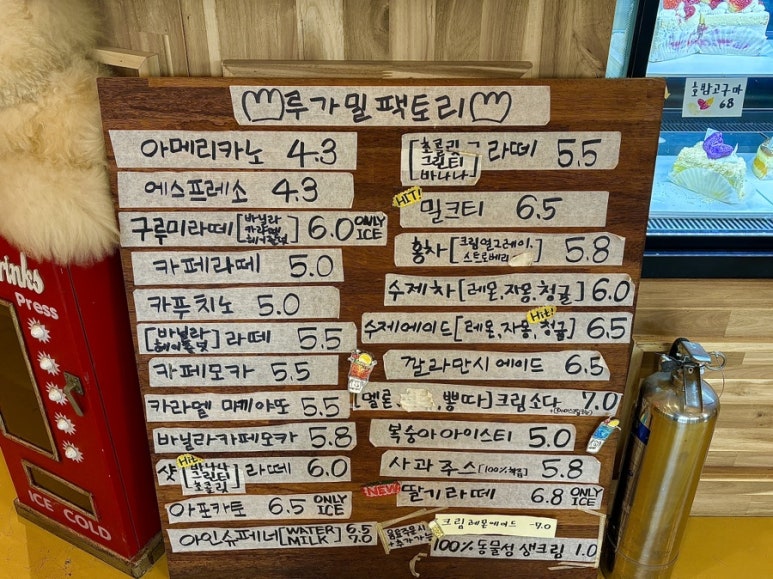 루가밀팩토리
아메리카노 4.3
에스프레소 4.3
구루미라떼 [바닐라 카라멜 헤이즐넛] 6.0 ONLY ICE
카페라떼 5.0
카푸치노 5.0
[바닐라 헤이즐넛] 라떼 5.5
카페모카 5.5
카라멜 마키아또 5.5
바닐라카페모카 5.8
Hit!
샷 [바나나 그린티 초콜릿] 라떼 6.0
아포카토 6.5 ONLY ICE
아인슈페너 [WATER 6.5
MILK] 7.0
[초콜릿 그린티 바나나] 라떼 5.5
HIT!
밀크티 6.5
홍차 [크림얼그레이, 스트로베리] 5.8
수제차 [레몬,자몽,청귤] 6.0
Hit!
수제에이드 [레몬,자몽,청귤] 6.5
깔라만시 에이드 6.5
[멜론, 뽕따] 크림소다 7.0
복숭아아이스티 5.0
사과쥬스 [100%착즙] 5.8
NEW
딸기라떼 6.8 ONLY ICE
크림레몬에이드 -7.0
음료주문시
+추가가능
100% 동물성 생크림 1.0
호박고구마
68
Drinks
Press
ICE COLD